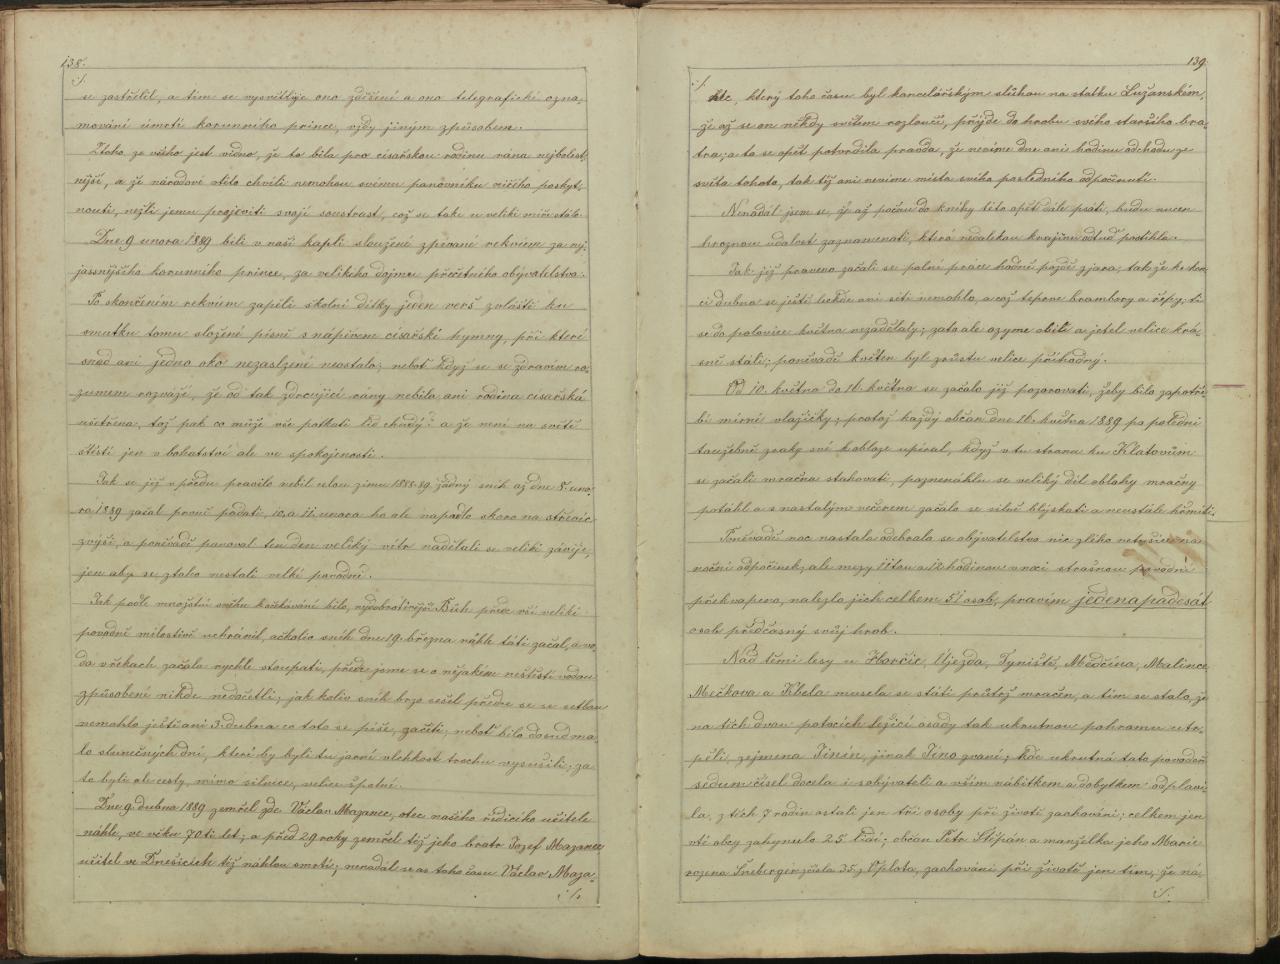 138.
·/.
se zastřelil, a tím se vysvětluje ono zděšené a ono telegrafické ozna,
mování úmrtí korunního prince, vždy jiným způsobem.
Ztoho ze všeho jest vidno, že to bila pro císařskou rodinu rána nejbolest,
nější, a že národové vtéto chvíli nemohou svému panovníku ničeho poskyt,
nouti, nežli jemu projeviti svojí soustrast, což se take u veliké míře stálo
Dne 9 unora 1889 bili v naší kapli sloužené zpívané rekviem za nej,
jassnějšího korunního prince, za velikeho dojmu přečetného obyvatelstva.
Po skončeném rekviem zapěli školní dítky jeden verš zvláští ku
smutku tomu složené písně s nápěvem císařské hymny, při které
snad ani jedno oko nezaslzené neostalo; neboť když se se zdravím ro,
zumem rozváží, že od tak zdrcující rány nebila ani rodina císařská
ušetřena, což pak co může vše potkati lid chudý! a že není na světě
štěstí jen v bohatství ale ve spokojenosti.
Jak se již v předu pravilo nebil celou zimu 1888-89 žádný sníh až dne 8. úno,
ra 1889 začal prvně padati, 10. a 11. unora ho ale napadlo skoro na střevíc
zvýší, a poněvádž panoval ten den veliký vítr nadělali se veliké závěje,
jen aby se ztoho nestali velké povodně.
Jak podle množství sněhu k očekávání bilo, nejdobrotivější Bůh přede vší velikí
povodně milostivě uchránil, ačkoliv sníh dne 19. března náhle táti začal, a vo,
da v řekach začala rychle stoupati, předce jsme se o nějakém neštěstí vodou
způsobené nikde nedočetli; jak koliv sníh brzo sešel předce se se setbou
nemohlo ještě ani 3. dubna co toto se píše, začíti, neboť bilo dosud má,
lo slunečných dní, které by byli tu jarní vlhkost trochu vysušili; za
to byli ale cesty, mimo silnice, velice špatné.
Dne 9. dubna 1889 zemřel zde Václav Mazanec, otec našeho řídícího učitele
náhle, ve věku 70ti let; a před 29 roky zemřel též jeho bratr Jozef Mazanec
učitel ve Dnešicích též náhlou smrtí; nenadál se as toho času Václav Maza-
·/.
139
·/.
nec, který toho času byl kancelářským sluhou na statku Lužanském,
že až se on někdy světem rozloučí, přijde do hrobu svého staršího bra,
tra; a to se opět potvrdila pravda, že nevíme dne ani hodinu odchodu ze
světa tohoto, tak též ani nevíme místa svého posledního odpočinutí.
Nenadál jsem se, že až počnu do knihy této opět dále psáti, budu nucen
hroznou událost zaznamenati, která nedalekou krajinu odtuď postihla.
Jak již praveno začali se polní práce hodně pozdě zjara; tak že ke kon,
ci dubna se ještě leckde ani síti nemohlo, a což teprve brambory a řepy; ti
se do polovice května nezadělaly; zato ale ozyme obilí a jetel velice krá,
sně stáli; poněvádž květen byl zrůstu velice příhodný.
Od 10. května do 16. května se začalo již pozorovati, žeby bilo zapotře,
bí mírné vlažičky; protož každý občan dne 16. května 1889 po poledni
toužebně zraky své k obloze upíral, když v tu stranu ku Klatovům
se začali mračna stahovati, poznenáhlu se veliký díl oblohy mračny
potáhl a s nastalým večerem začalo se silně blýskati a neustále hřmíti.
Poněvádž noc nastala odebrala se obyvatelstvo nic zlého netušíce na
noční odpočinek, ale mezy 11tou a 12. hodinou v noci strašnou povodní
překvapeno, nalezlo jich celkem 51 osob, pravím jedenapadesát
osob předčasný svůj hrob.
Nad těmi lesy u Horčic, Újezda, Týniště, Mědčína, Malince
Mečkova a Kbela musela se státi průtrž mračen, a tím se stalo, že
na těch dvou potocích ležící osady tak ukrutnou pohromu utr,
pěli, zejmena Jinín, jinak Jíno zvaní; kde ukrutná tato povodeň
sedum čísel docela i sobývateli a vším nábitkem a dobytkem odplavi,
la, z těch 7 rodin ostali jen tři osoby při životě zachováni; celkem jen
vté obcy zahynulo 25 lidí; občan Petr Štěpán a manželka jeho Marie
rozena Šneberger zčísla 35 z Oplota, zachováni při životě jen tím, že ná,
·/.